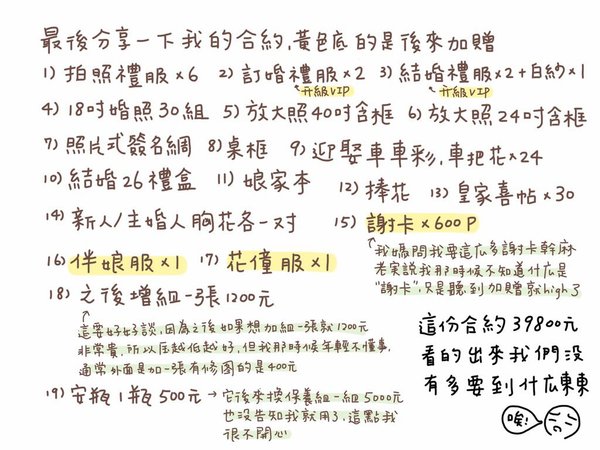 最後分享一下我的合約,黃色底的是後來加贈
1) 拍照禮服×6 2) 訂婚禮服×2 3) 結婚禮服×2+白紗×1
升級VIP 升級VIP
4) 18吋婚照30組 5) 放大照40吋含框 6) 放大照24吋含框
7) 照片式簽名綢 8) 桌框 9) 迎娶車車彩,車把花×24
10) 結婚26禮盒 11) 娘家本 12) 捧花 13) 皇家喜帖×30
14) 新人/主婚人胸花各一対 15) 謝卡×600P
我媽問我要這広多謝卡幹麻
老実說我那時候不知道什広是
"謝卡",只是聽到加贈就high了
16) 伴娘服×1 17) 花僮服×1
18) 之後增組一張1200元
這要好好談,因為之後如果想加組一張就1200元
非常貴,所以压越低越好,但我那時候年輕不懂事,
通常外面是加一張有修图的是400元
19) 安瓶1瓶500元→它後來換保養組一組5000元
也沒告知我就用了,這點我
很不開心
這份合約39800元
看的出來我們沒
有多要到什広東東
唉!